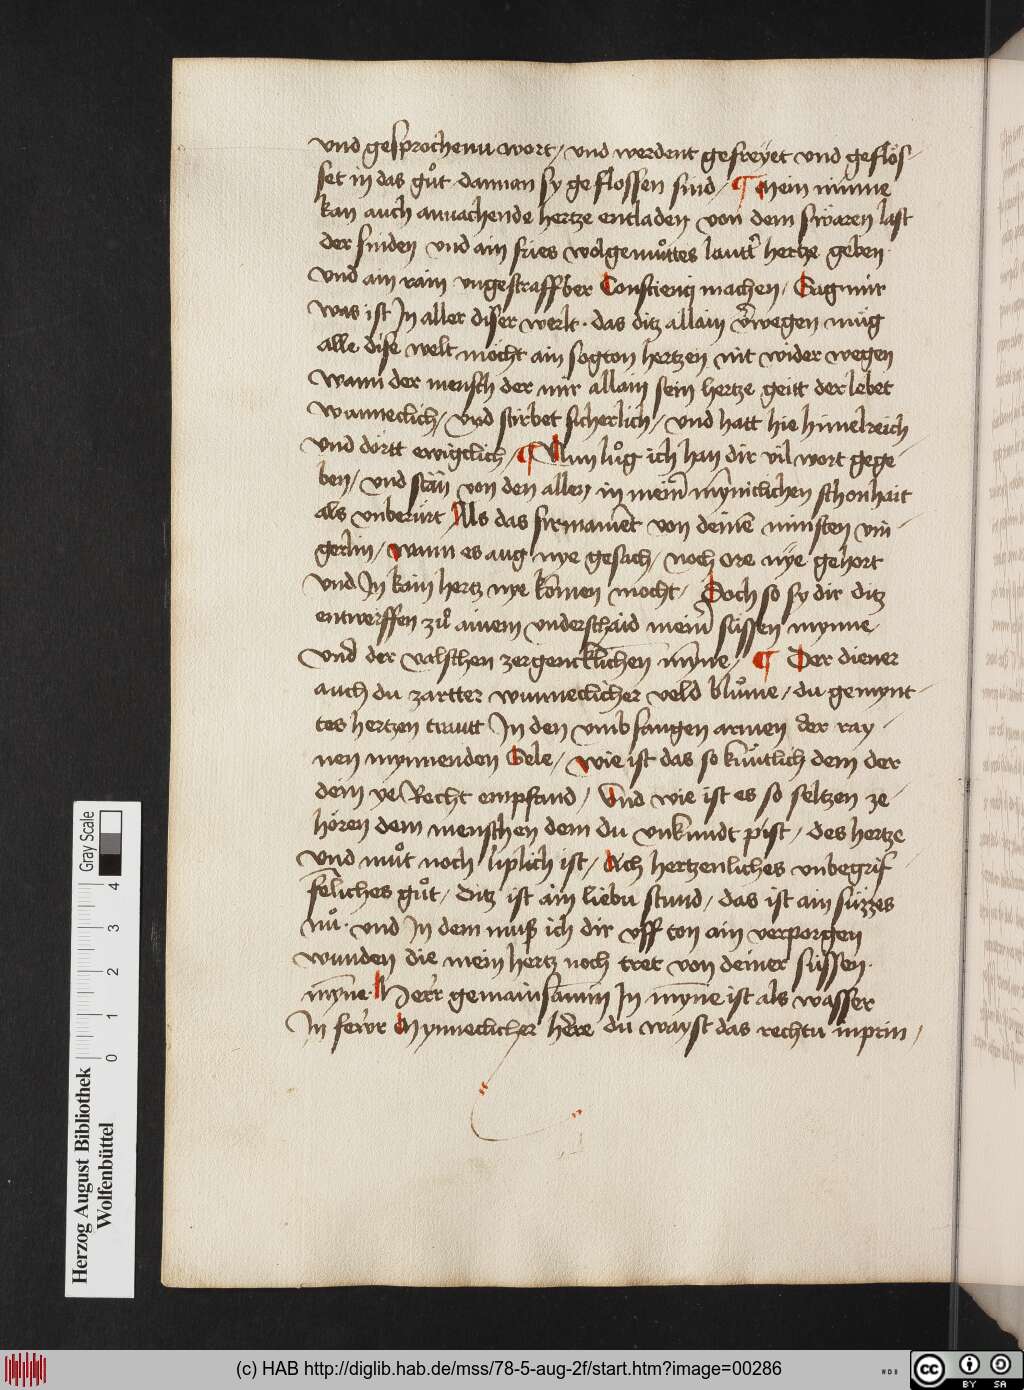 vnd gesprochenn wort / vnd werdent gefreyet vnd geflös-
set in das gůt dannan sy geflossen sind / ¶ Mein minne
kan auch anuachende hertze entladen von dem swären last
der sunden vnd ain fries wolgemůttes lautter hertze geben
vnd ain rain vngestraffber Conscienci machen / Sag mir
was ist In aller diser werlt · das ditz allain v̄wegen müg
alle dise welt möcht ain sogton hertzen nit wider wegen
wann der mensch der mir allain sein hertze geitt der lebet
wunneclich / vnd stirbet sicherlich / vnd hatt hie himelreich
vnd dörtt ewigclich / ¶ Nun lůg ich han dir vil wort gege-
ben / vnd stän von den allen in mein̄ myniclichen schonhait
als vnberürt Als das firmamēt von deinē minsten vin-
gerlin / wann es aug nye gesach / noch ore nye gehort
vnd In kain hertz nye kömen mocht / Doch so sy dir ditz
entworffen zů ainem vnderschaid mein̄ süssen mynne
vnd der valschen zergencklichen mȳne / ¶ Der diener
auch du zartter wunneclicher veld blůme / du gemynt-
tes hertzen trautt In den vmbfangen armen der ray-
nen mynnenden Sele / wie ist das so kuntlich dem der
dein ye Recht empfand / Vnd wie ist es so seltzen ze-
hören dem menschen dem du vnkundt pist / des hertze
vnd můt noch liplich ist / Ach hertzenliches vnbegrif-
fēliches gůt / Ditz ist ain liebu stund / das ist ain süzzes
nů · vnd In dem muß ich dir vff ton ain verporgen
wunden die mein hertz noch tret von deiner süssen
mȳne · Herr gemainsāmin In mȳne ist als wasser
In fewr Mynneclicher hēre du wayst das rechtu inprin /
Herzog August Bibliothek
Wolfenbüttel
0 1 2 3 4
Gray Scale
(c) HAB http://diglib.hab.de/mss/78-5-aug-2f/start.htm?image=00286
WDB
cc
BY SA